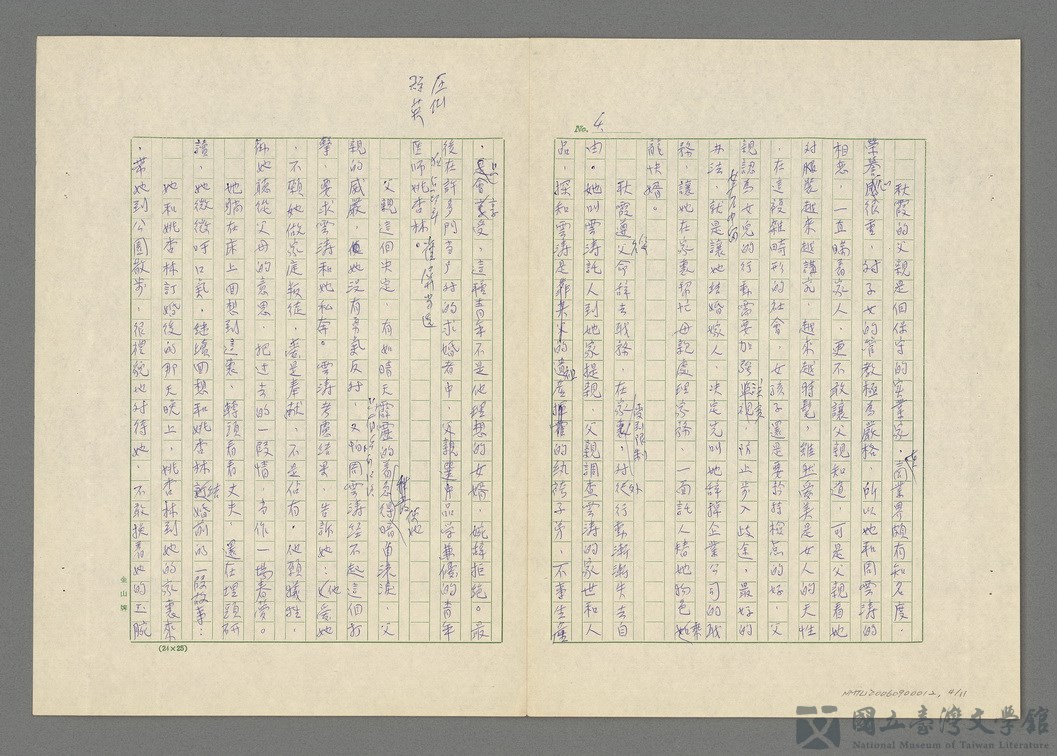 No. 4
秋霞的父親是個保守的實業家,在商業界頗有知名度。
榮譽心很重,對子女的管教極為嚴格,所以她和周雲濤的
相戀,一直瞞著家人,更不敢讓父親知道,可是父親看她
對服裝越來越講究,越來越時髦,雖然愛美是女人的天性
,在這複雜畸形的社會,女孩子還是要於持檢點的好,父
親認為女兒的行動需要加強監視,防止步入歧途,最好的
办法,就是讓她結婚嫁人,決定先叫她辭掉企業公司的職
務,讓她在家裏幫忙母親處理家務,一面託人替她物色
龍快婿。
秋霞遵父命辞去職務,在家裏,行動漸漸失去自
由。她叫雲濤託人到她家提親,父親調查雲濤的家世和人
品,探知雲濤是靠其父的遺產揮霍的紈袴子弟,不事生產
,只會享受,這種青年不是他理想的女婿,婉轉拒絕。最
後在許多門當戶對的求婚者中,父親選中品学兼優的青年
医师姚杏林。
父親這個决定,有如晴天霹靂的
暗自流淚,父
親的威嚴,她沒有勇氣反对,又怕周雲濤經不起這個打
擊,要求雲濤和她私奔。雲濤考慮結果,告訴她:他愛她
,不願她做家庭叛徒,愛是奉献,不是佔有。他願犧牲,
勸她聽從父母的意思,把过去的一段情,当作一場春夢。
她躺在床上回想到這裏,轉頭看看丈夫,還在埋頭研
讀,她微微吁口氣,继續回想和姚杏林結婚前的一段故事:
她和姚杏林訂婚後的那天晚上,姚杏林到她的家裏來
,帶她到公園散步,很禮貌地对待她,不敢挨着她的玉腕
(24×25)
金山牌
NMTL20060900012, 4/11
國立臺灣文學館
National Museum of Taiwan Literature